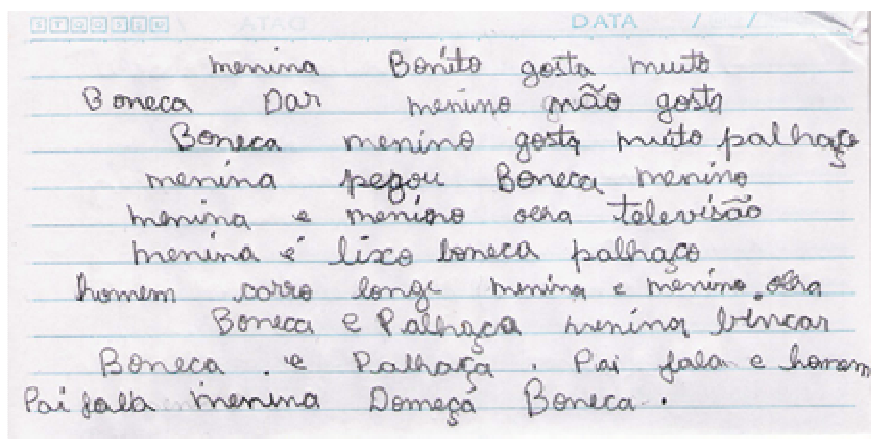 STQQSSD DATA / /
menina Bonito gosta muito
Boneca Dar menino não gosta
Boneca menino gosta muito palhaço
menina pegou Boneca menino
menina e menino olra televisão
menina é lixo boneca palhaço
homem carro longe menina e menino olra
Boneca e Palhaça menina brincar
Boneca . e Palhaça . Pai fala e homem
Pai fala menina Domeçá Boneca .